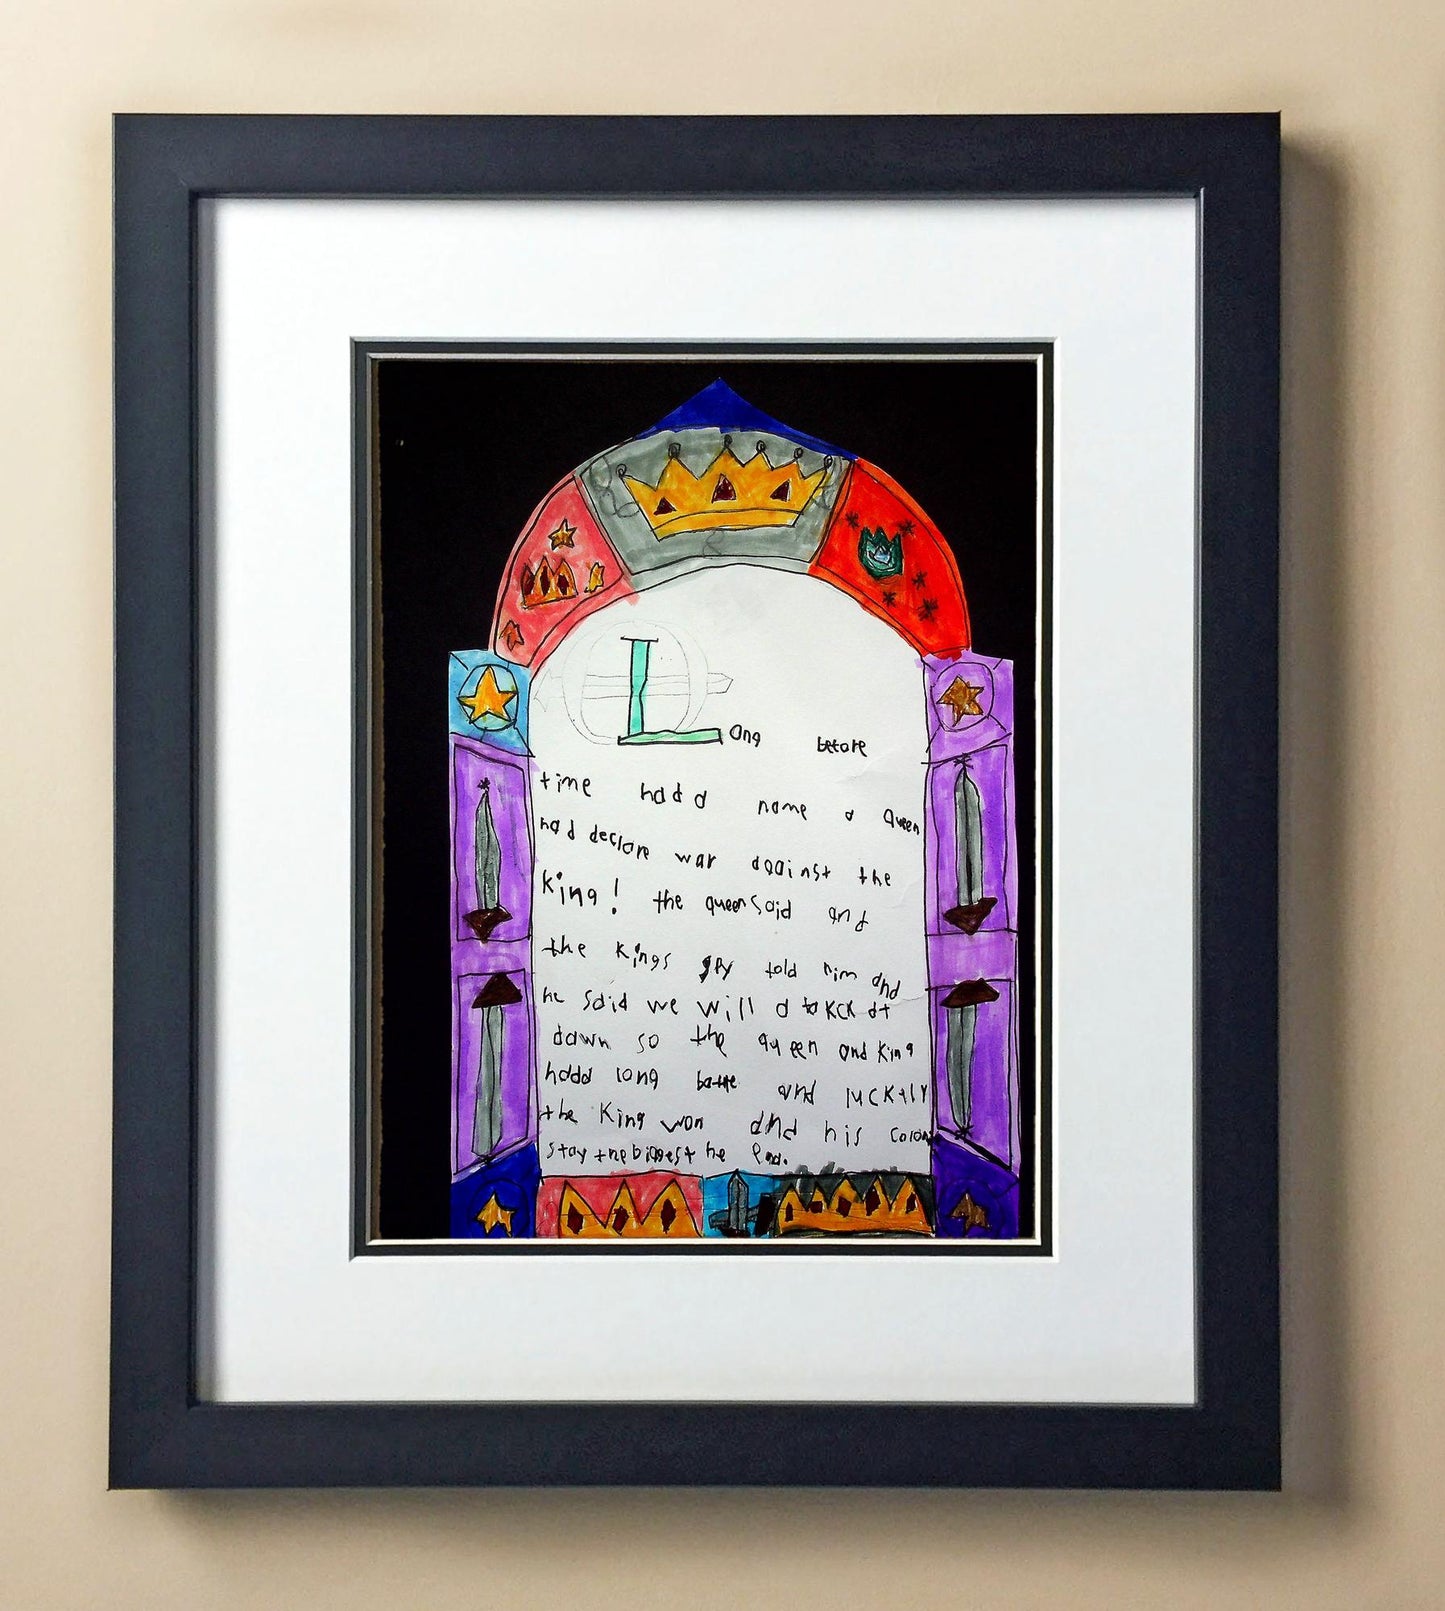 Long before
time had a name a Queen
had declare war against the
King! the queen said and
the Kings spy told him and
he said we will a takck at
dawn so the queen and King
hadd long battle and lucktly
the King won and his colony
stay the biggest he End.